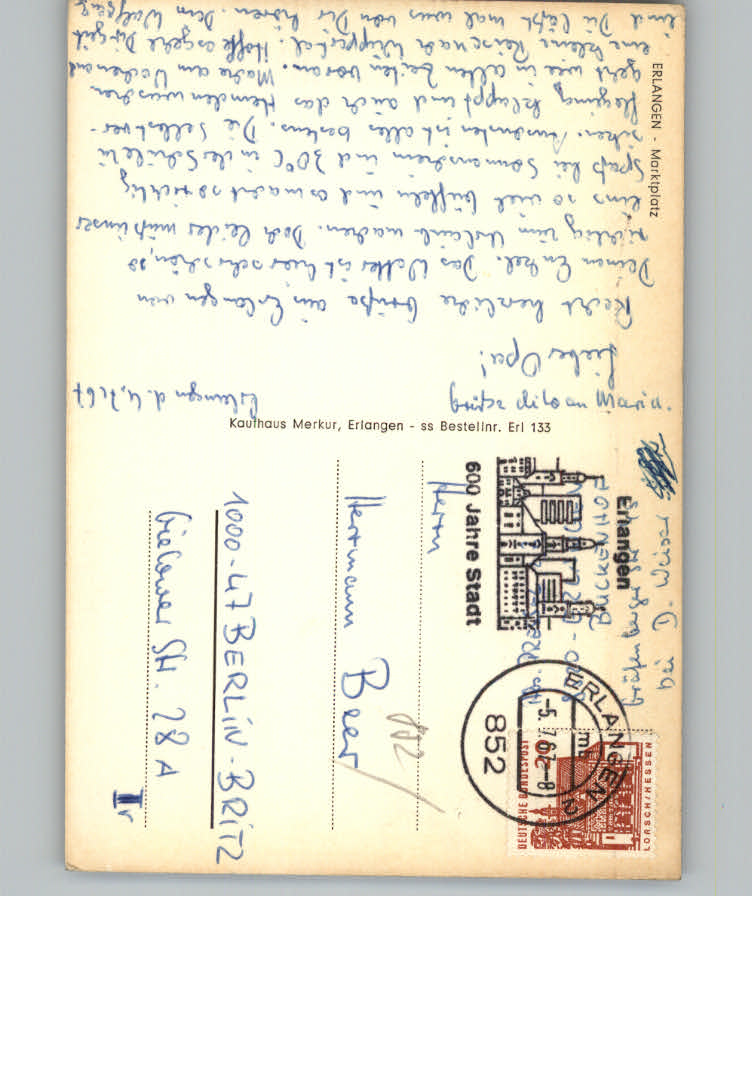 ERLANGEN - Marktplatz
Erlangen d. 4.7.67
Lieber Opa!
Recht herzliche Grüße aus Erlangen von
Deinem Enkel. Das Wetter ist hier sehr schön, so
richtig zum Urlaub machen. Doch leider muß unser
eins so viel büffeln und es macht so richtig
Spaß bei Sonnenschein und 30°C in der Schule zu
sitzen. Ansonsten ist alles bestens. Die Selbstver-
pflegung klappt und auch das Hemden waschen
geht wie in alten Zeiten voran. Mache am Wochenend
eine kleine Reise nach Wuppertal. Hoffe es geht Dir gut
und Du läßt mal was von Dir hören. Dein Wolfgang
Kaufhaus Merkur, Erlangen - ss Bestellnr. Erl 133
Erlangen
600 Jahre Stadt
ERLANGEN 2
-5.7.67-8
mb
852
DEUTSCHE BUNDESPOST
20
LORSCH/HESSEN
bei
Herrn
Herrmann Beer
882
1000-47 BERLIN-BRITZ
Gielower Str. 28 A
Ir